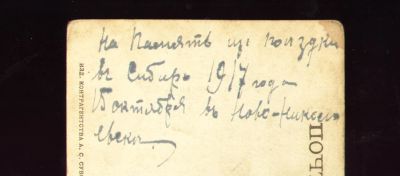 На Память из поездки
въ Сибирь 1917 года
15 октября въ Ново-Никола
евска
ИЗД. КОНТРАГЕНТСТВА А. С. СУВО
ПОЧТ